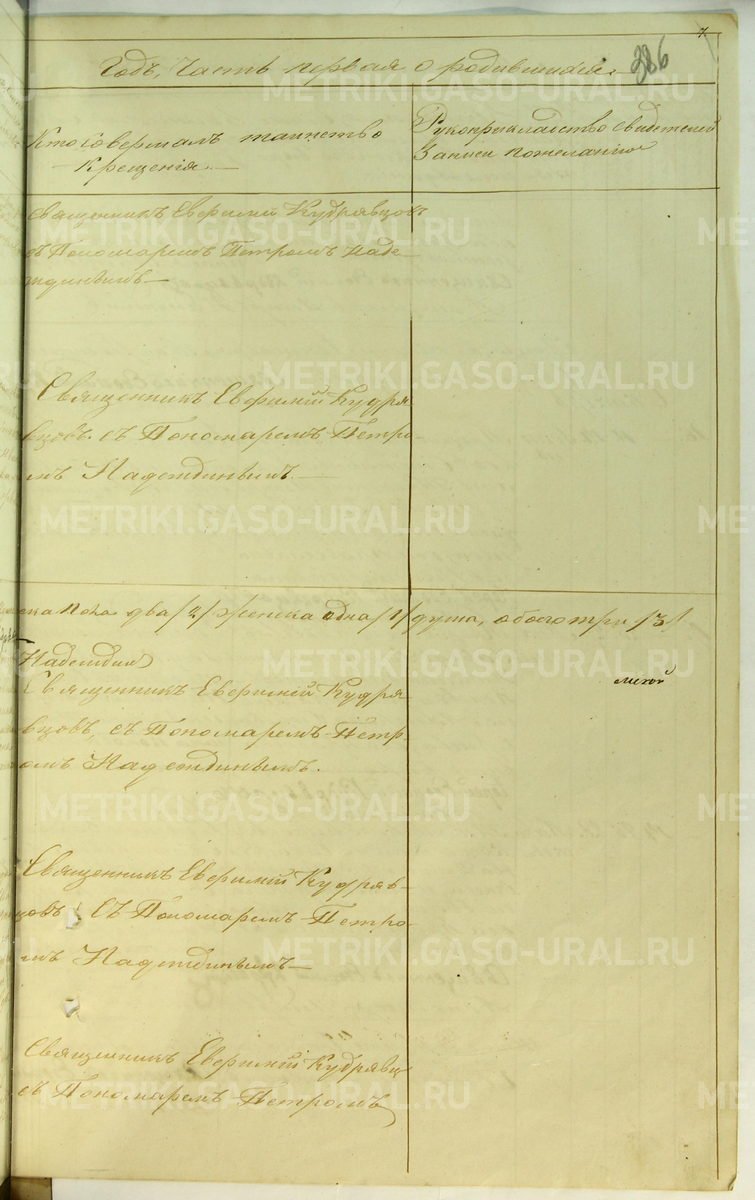 7
386
Годъ, Часть первая о родившихся.
Кто совершалъ таинство
крещенія.
Рукоприкладство свидетелей
записи по желанію
Священникъ Евфимій Кудрявцовъ
съ Пономаремъ Петромъ Наде-
ждинымъ
Священникъ Евфимій Кудря
вцовъ. съ Пономаремъ Петро
мъ Надеждинымъ
пола два /2/ женска одна /1/ душа, обоего три /3/
Надеждин
Священникъ Евфимій Кудря
вцовъ, съ Пономаремъ Петр
омъ Надеждинымъ.
Священникъ Евфимій Кудряв-
цовъ съ Пономаремъ Петро
мъ Надеждинымъ
Священникъ Евфимій Кудрявцо
съ Пономаремъ Петромъ
METRIKI.GASO-URAL.RU